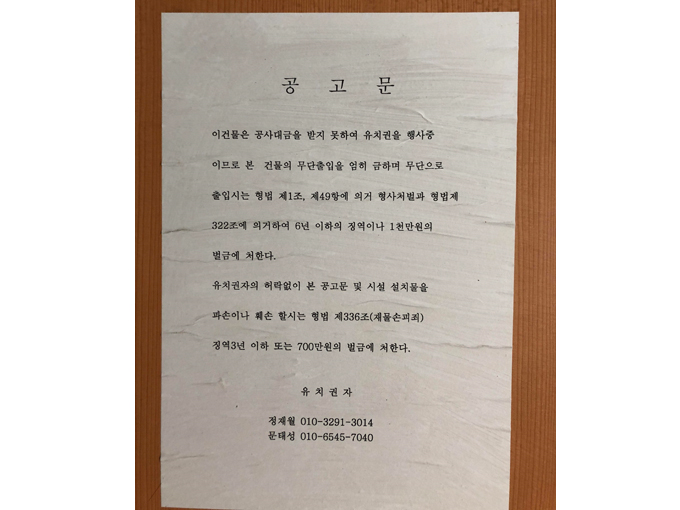 공 고 문
이건물은 공사대금을 받지 못하여 유치권을 행사중
이므로 본 건물의 무단출입을 엄히 금하며 무단으로
출입시는 형법 제1조, 제49항에 의거 형사처벌과 형법제
322조에 의거하여 6년 이하의 징역이나 1천만원의
벌금에 처한다.
유치권자의 허락없이 본 공고문 및 시설 설치물을
파손이나 훼손 할시는 형법 제336조(재물손괴죄)
징역3년 이하 또는 700만원의 벌금에 처한다.
유 치 권 자
정재월 010-3291-3014
문태성 010-6545-7040